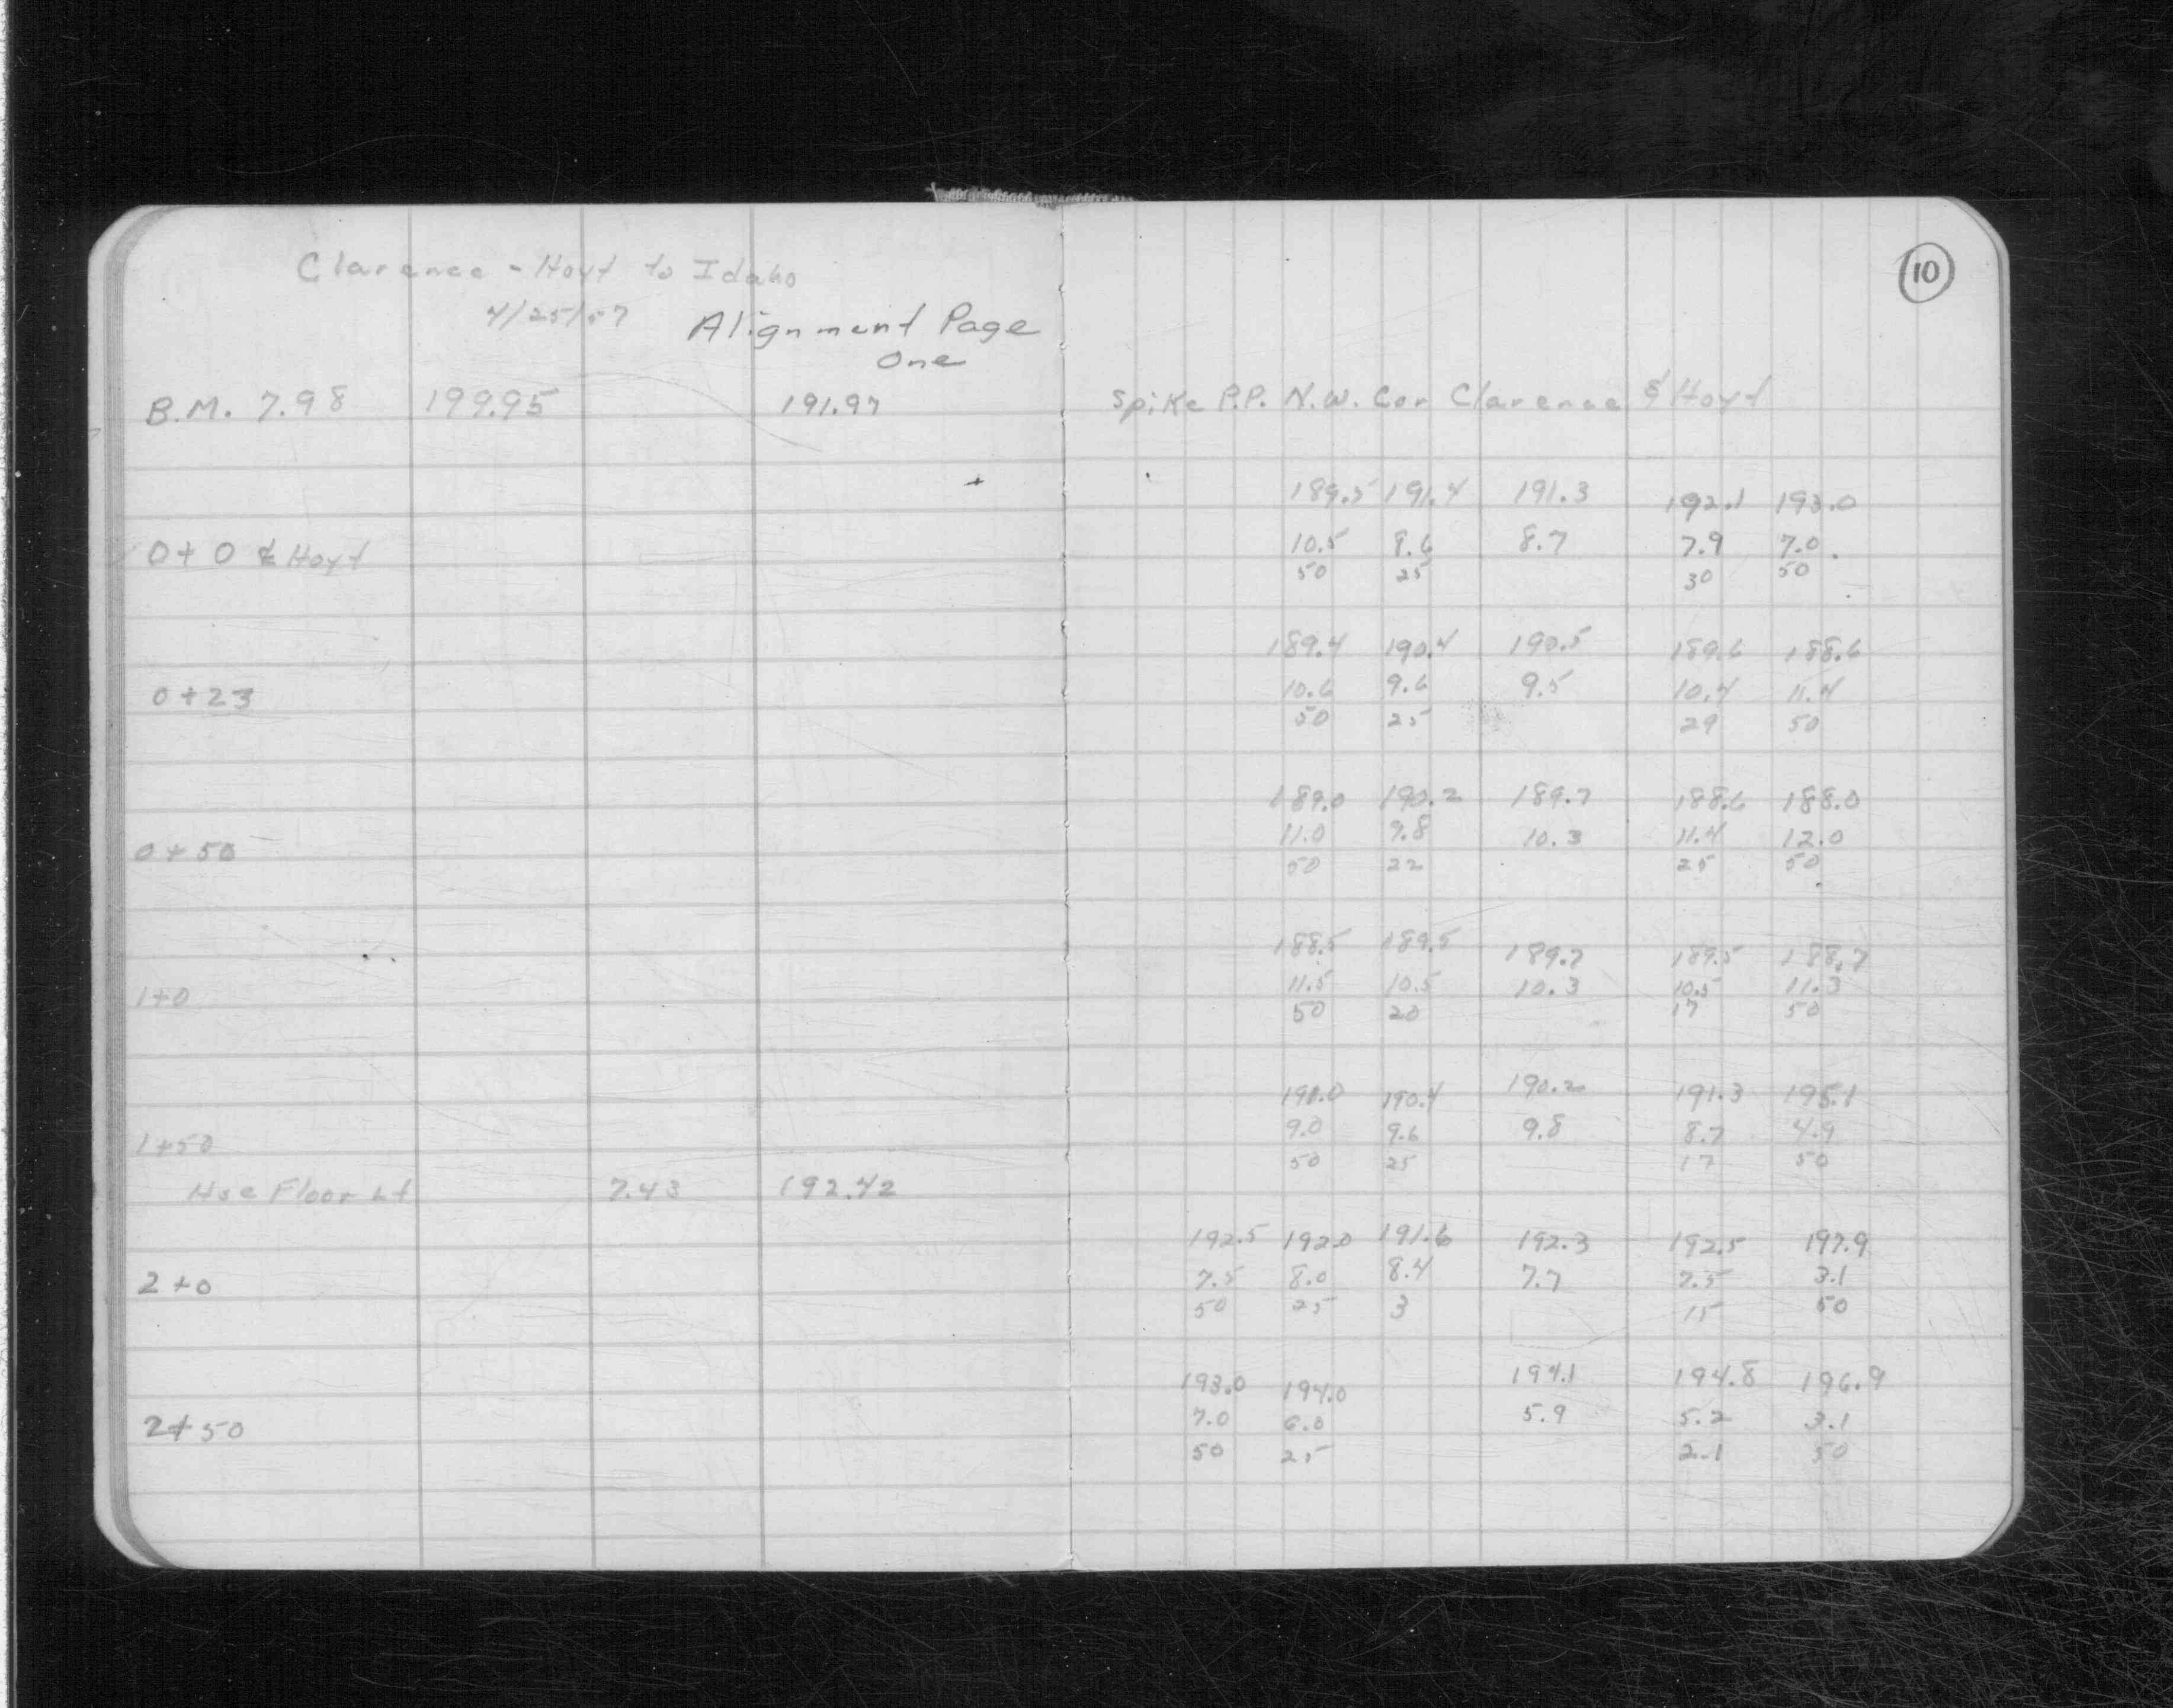 10
Clarence - Hoyt to Idaho
4/25/57
Alignment Page
One
B.M. 7.98 199.95 191.97 Spike P.P. N.W. Cor Clarence & Hoyt
189.5 191.4 191.3 192.1 193.0
0+0 ℄ Hoyt 10.5 8.6 8.7 7.9 7.0
50 25 30 50
189.4 190.4 190.5 189.6 188.6
0+23 10.6 9.6 9.5 10.4 11.4
50 25 29 50
189.0 190.2 189.7 188.6 188.0
0+50 11.0 9.8 10.3 11.4 12.0
50 22 25 50
188.5 189.5 189.7 189.5 188.7
1+0 11.5 10.5 10.3 10.5 11.3
50 20 17 50
191.0 190.4 190.2 191.3 195.1
1+50 9.0 9.6 9.8 8.7 4.9
50 25 17 50
Hse Floor Lt 7.43 192.42
192.5 192.0 191.6 192.3 192.5 197.9
2+0 7.5 8.0 8.4 7.7 7.5 3.1
50 25 3 15 50
193.0 194.0 194.1 194.8 196.9
2+50 7.0 6.0 5.9 5.2 3.1
50 25 2.1 50